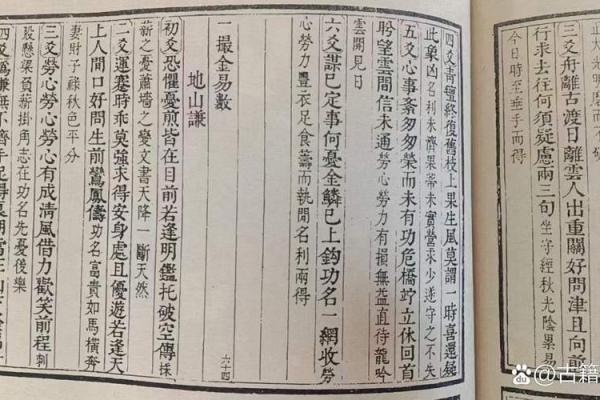 正大光明
行求去往何須疑慮兩三句坐守經秋光陰果易
今日時至垂手而得
三爻舟離古渡日離雲人出重關好問津且向前
四爻青氈終復舊枝上果生風莫謂一時喜還疑
此象凶名利未濟果蒂未實營求少遂守之不失
五爻心事紊匆匆榮而未有功危橋竚立休回首
聆望雲間信未通勞心勞力有損無益直待龍吟
雲開見日
六爻謀已定事何憂金鱗已上鈎功名一網收勞
心勞力豐衣足食籌而執閒名利兩得
一撮金易數
六十四
地山謙
初爻恐懼憂煎皆在日前若逢明鑑托破空傳採
薪之憂蕭墻之變文書天降一斷天然
二爻運蹇時乖莫強求得安身處且優遊若逢天
上人間口好問生前鸞鳳儔功名富貴如馬橫奔
妻財子祿秋色平分
三爻勞心勞心勞心有成清風借力歡笑前程刺
股懸梁負薪掛角志在功名先憂後樂
四爻為謙無不齊手足得
@古籍